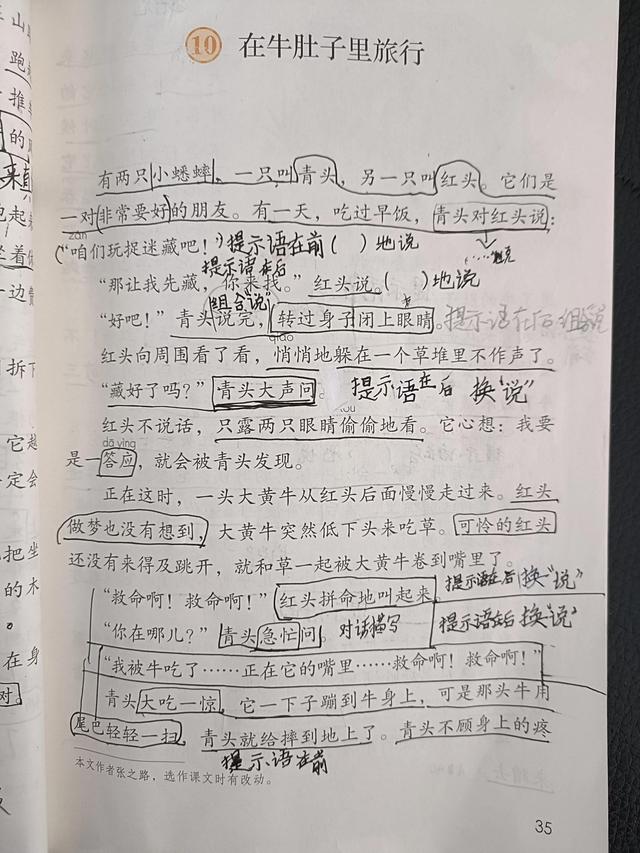 10 在牛肚子里旅行
有两只小蟋蟀，一只叫青头，另一只叫红头。它们是
一对非常要好的朋友。有一天，吃过早饭，青头对红头说：
zán
“咱们玩捉迷藏吧！” 提示语在前（ ）地说
提示语在后
“那让我先藏，你来找。”红头说。（ ）地说
组合“说”
“好吧！”青头说完，转过身子闭上眼睛。提示语在后
qiāo
红头向周围看了看，悄悄地躲在一个草堆里不作声了。
“藏好了吗？”青头大声问。 提示语在后 换“说”
红头不说话，只露两只眼睛偷偷地看。它心想：我要
dā ying
是一答应，就会被青头发现。
正在这时，一头大黄牛从红头后面慢慢走过来。红头
做梦也没有想到，大黄牛突然低下头来吃草。可怜的红头
还没有来得及跳开，就和草一起被大黄牛卷到嘴里了。
“救命啊！救命啊！”红头拼命地叫起来。 提示语在后 换“说”
“你在哪儿？”青头急忙问。 对话描写 提示语在后 换“说”
“我被牛吃了……正在它的嘴里……救命啊！救命啊！”
青头大吃一惊，它一下子蹦到牛身上，可是那头牛用
尾巴轻轻一扫，青头就给摔到地上了。青头不顾身上的疼
提示语在前
本文作者张之路，选作课文时有改动。
35
山
跑
推
的
来
起
坐着
一边
拆下
它
一定会
把坐
的木
在身
对。